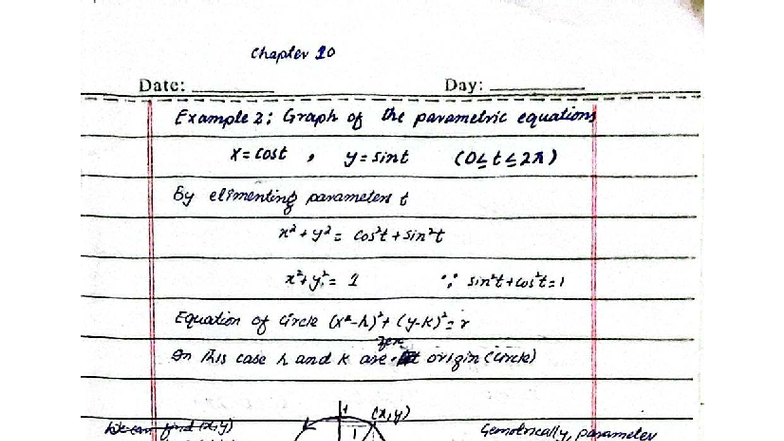 Chapter 10
Date: ________ Day: ________
Example 2: Graph of the parametric equations
x = cost , y = sint (0 ≤ t ≤ 2π)
By elimenting parameters t
x² + y² = cos²t + sin²t
x² + y² = 1 ∵ sin²t + cos²t = 1
Equation of circle (x²-h)² + (y-k)² = r
In this case h and k are zero origin (circle)
(x,y)
We can find (x,y) Gemotrically, parameter
1